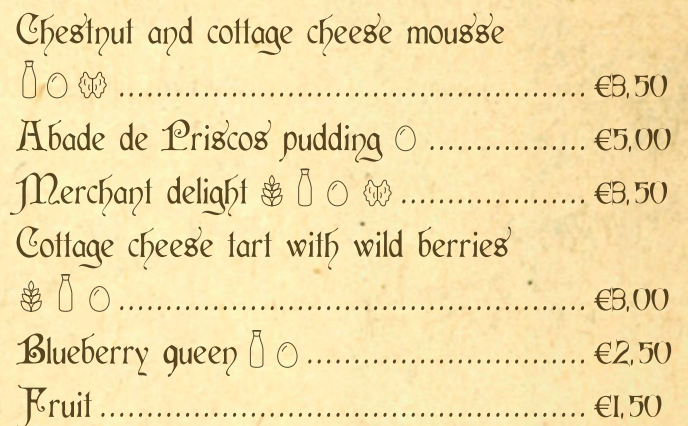 Chestnut and cottage cheese mousse
........................................................ €3,50
Abade de Priscos pudding ................... €5,00
Merchant delight ...................... €3,50
Cottage cheese tart with wild berries
........................................................ €3,00
Blueberry queen ................................. €2,50
Fruit .......................................................... €1,50